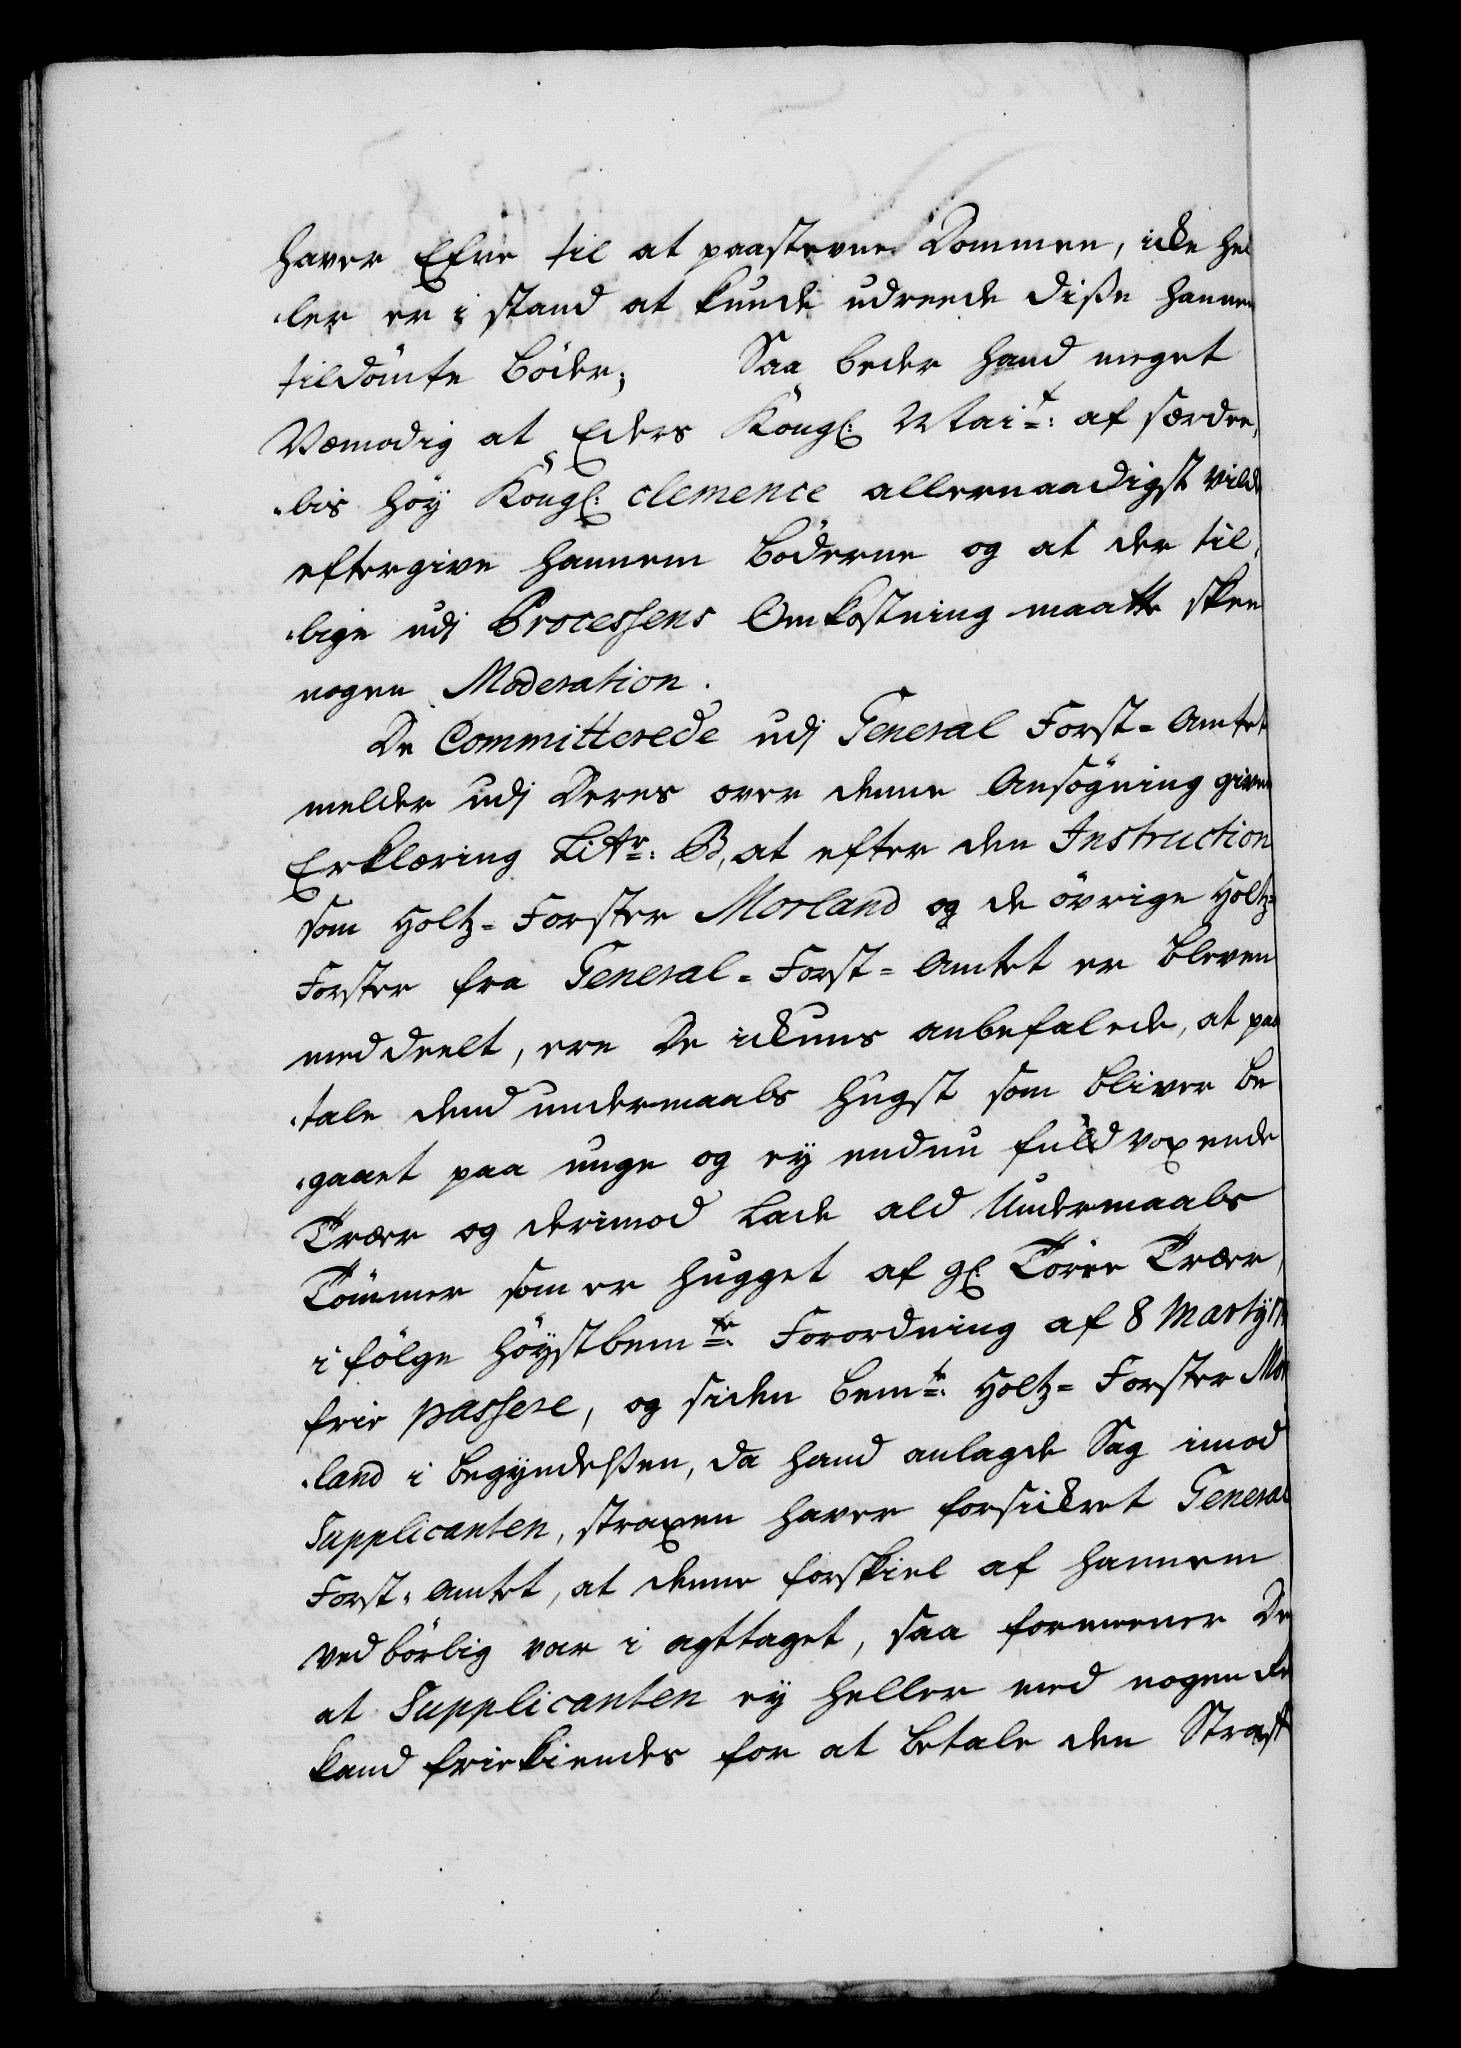 haver Efne til at paastevne Dommen, icke hel
"ler er i stand at kunde udreede diße hannem
tildömte Böder; Saa beder hand meget
Vemodig at Eders Kongl: Mai<sup>t</sup>: af særdee,
"lis höy Kongl: clemence allernaadigst vilde
eftergive hannem Böderne og at der til,
"lige udj Processens Omkostning maatte skee
nogen Moderation.
De Committerede udj General Forst=Amtet
melder udj Deres over denne Ansögning given
Erklæring Litr: B, at efter den Instruction
som Holtz=Forster Morland og de övrige Holtz=
Forster fra General=Forst=Amtet er bleven
meddeelt, ere De ickuns anbefalede, at paa
"tale dend undermaals Hugst som bliver be
"gaaet paa unge og ey endnu fuldvoxende
Træer og derimod lade ald Undermaals
Tömmer som er hugget af gl: Törre Træer
i fölge höystbem<sup>te</sup>: Forordning af 8 Martij
frie passere, og siden bem<sup>te</sup>: Holtz=Forster Mor
"land i begyndelßen, da hand anlagde Sag imod
Supplicanten, straxen haver forsickret General
Forst=Amtet, at denne forskiel af hannem
vedbörlig var i agttaget, saa formeener De
at Supplicanten ey heller med nogen
kand friekiendes for at betale den Straf